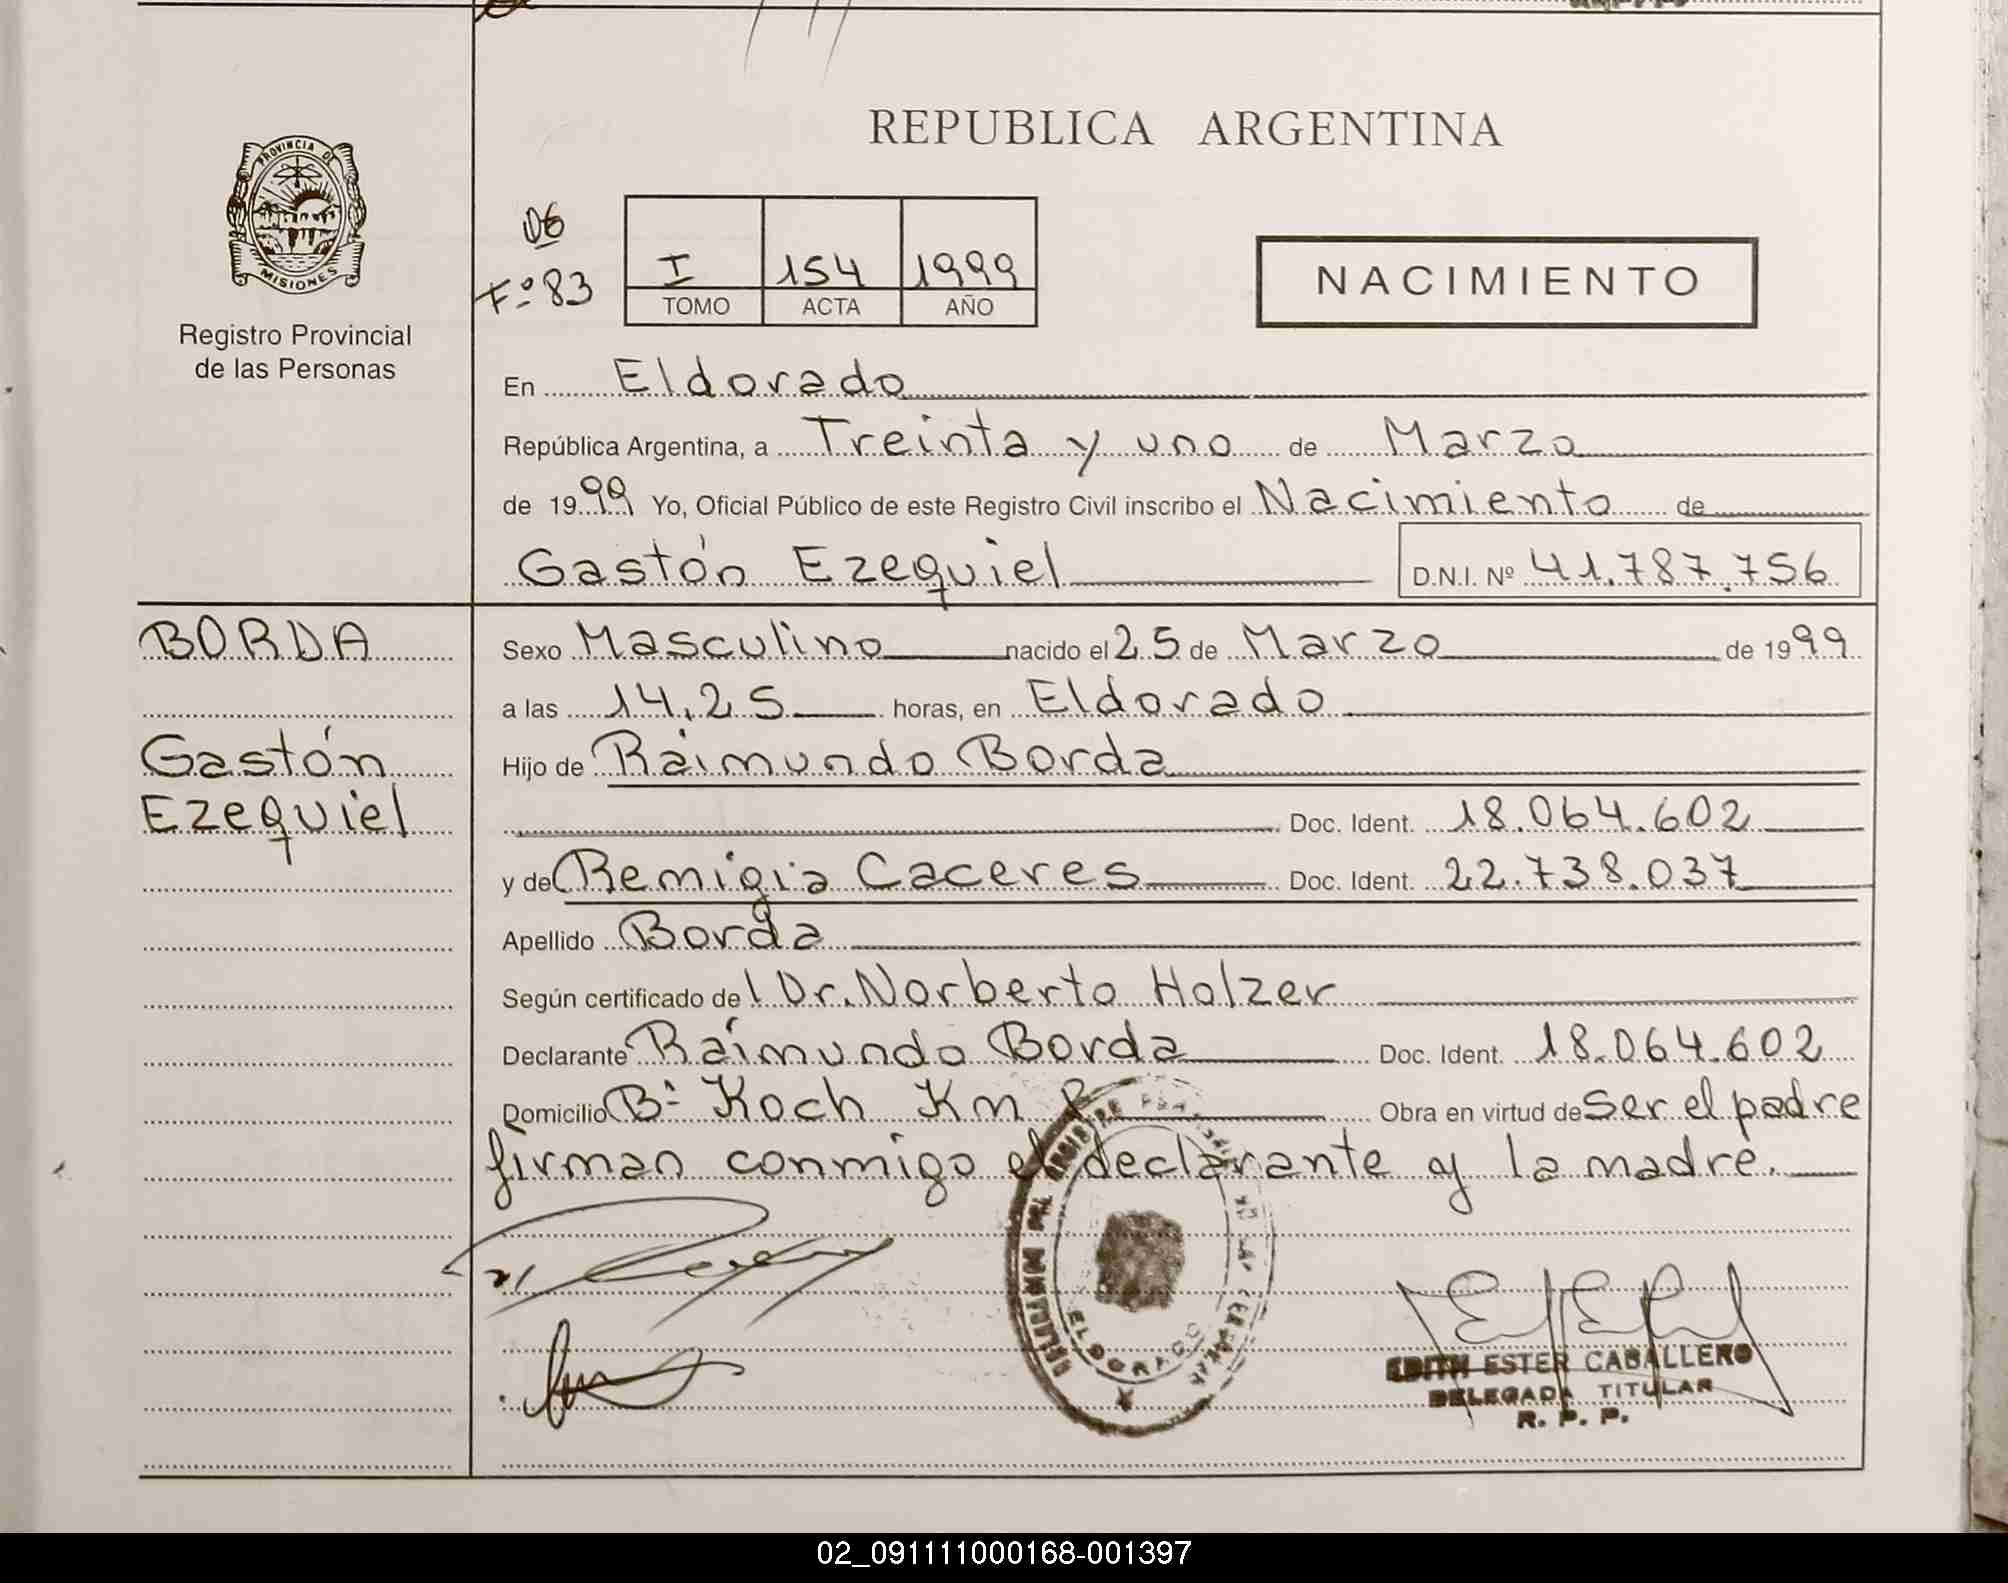 REPUBLICA ARGENTINA
PROVINCIA DE
MISIONES
Registro Provincial
de las Personas
06
Fº 83
I 154 1999
TOMO ACTA AÑO
NACIMIENTO
En Eldorado
República Argentina, a Treinta y uno de Marzo
de 1999 Yo, Oficial Público de este Registro Civil inscribo el Nacimiento de
Gastón Ezequiel D.N.I. Nº 41.787.756
BORDA
Gastón
Ezequiel
Sexo Masculino nacido el 25 de Marzo de 1999
a las 14.25 horas, en Eldorado
Hijo de Raimundo Borda
Doc. Ident. 18.064.602
y de Remigia Caceres Doc. Ident. 22.738.037
Apellido Borda
Según certificado de l Dr. Norberto Holzer
Declarante Raimundo Borda Doc. Ident. 18.064.602
Domicilio Bº Koch Km 8 Obra en virtud de ser el padre
firman conmigo el declarante y la madre.
ELDORADO
EDITH ESTER CABALLERO
DELEGADA TITULAR
R. P. P.
02_091111000168-001397